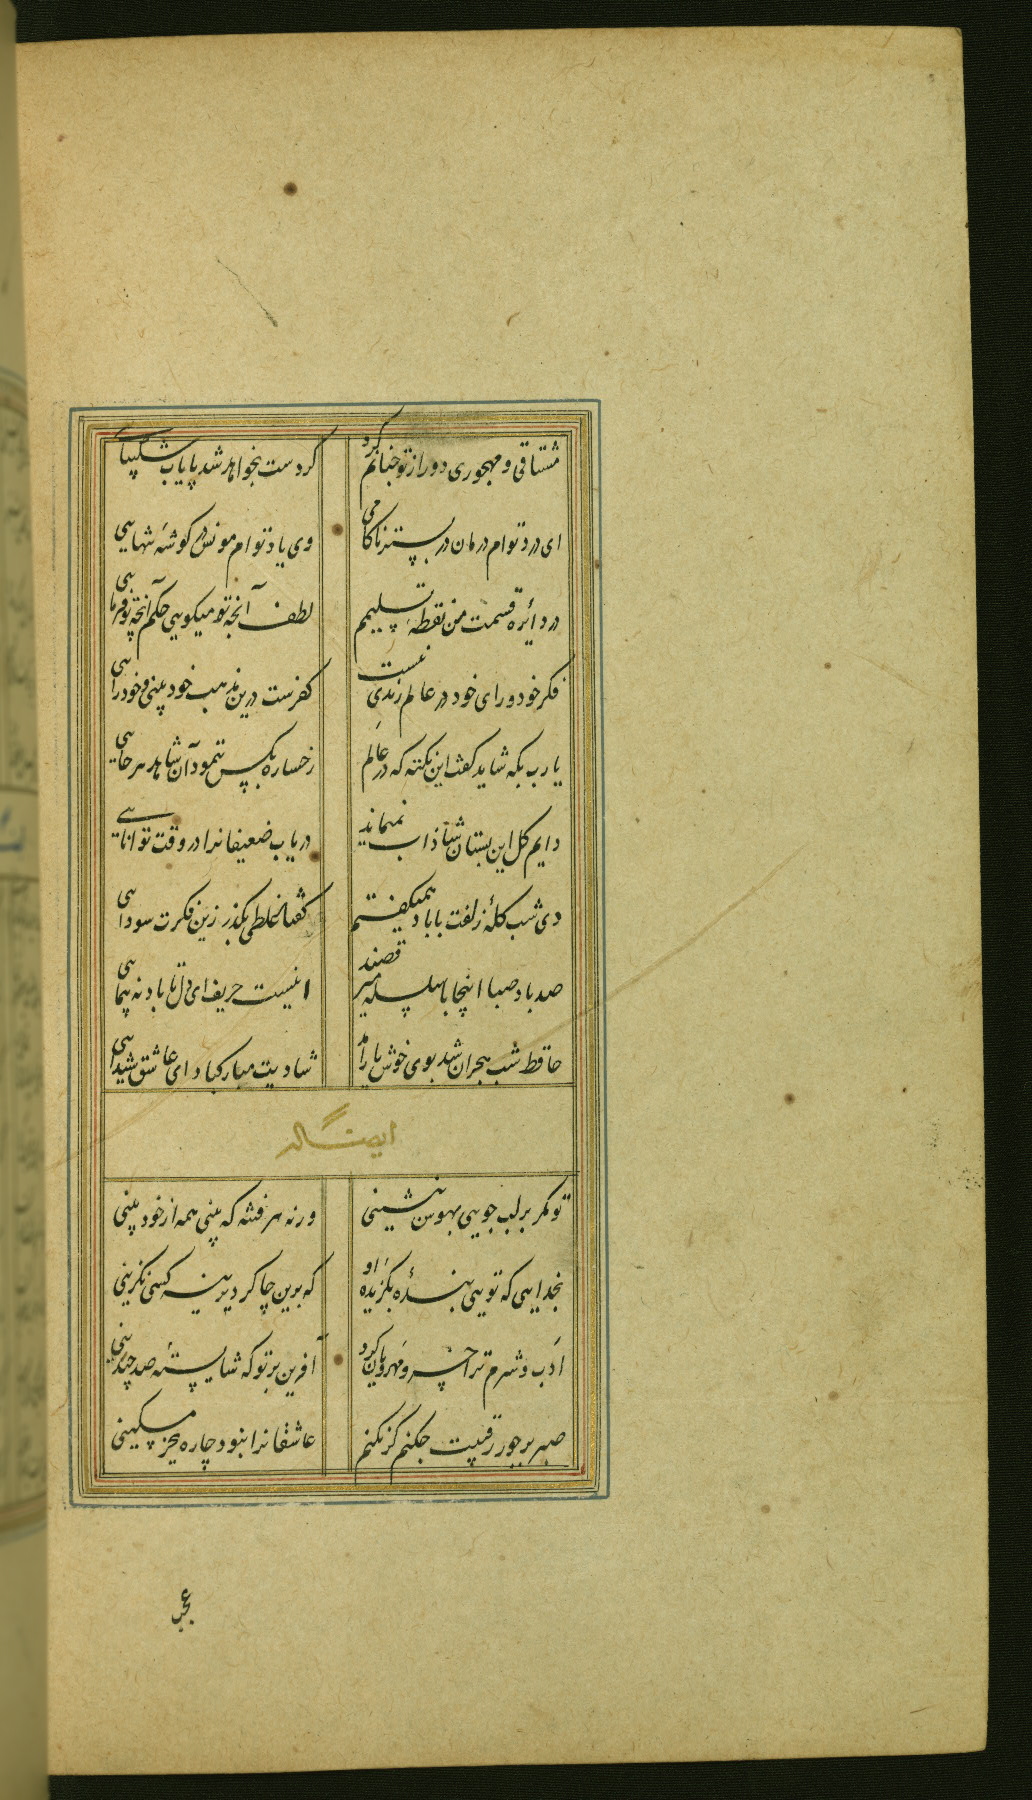 مشتاقی و مهجوری دور از تو چنانم کرد
کز دست بخواهد شد پایاب شکیبایی
ای درد توام درمان در بستر ناکامی
وی یاد توام مونس در گوشهٔ تنهایی
در دائره قسمت من نقطهٔ تسلیمم
لطف آنچه تو میگویی حکم آنچه تو فرمایی
فکر خود و رای خود در عالم رندی نیست
کفرست درین مذهب خود بینی و خود رایی
یا رب بکه شاید گفت این نکته که در عالم
رخساره بکس ننمود آن شاهد هر جایی
دایم گل این بستان شاداب نمیماند
دریاب ضعیفانرا در وقت توانایی
دی شب گلهٔ زلفت با باد همیگفتم
گفتا غلطی بگذر زین فکرت سودایی
صد باد صبا اینجا با سلسله میرقصند
اینست حریف ای دل تا باد نه پیمایی
حافظ شب هجران شد بوی خوش یار آمد
شادیت مبارکباد ای عاشق شیدایی
ایضاً له
تو مگر بر لب جویی بهوس ننشینی
ورنه هر فتنه که بینی همه از خود بینی
بخدایی که تویی بندهٔ بگزیدهٔ او
که برین چاکر دیرینه کسی نگزینی
ادب و شرم ترا خسرو مهرویان کرد
آفرین بر تو که شایستهٔ صد چندینی
صبر بر جور رقیبت چکنم گر نکنم
عاشقانرا نبود چاره بجز مسکینی
عجب